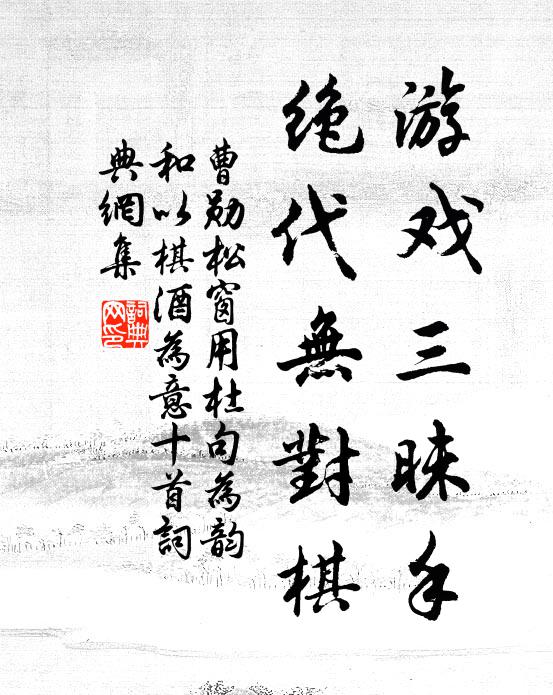 游戏三昧手
绝代無對棋
曹勋松窗用杜句為韵
和以棋酒為意十首詞
典網集
詞典网印